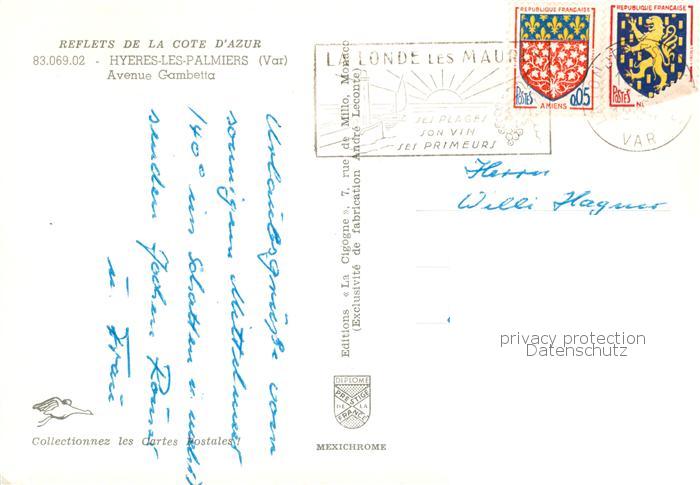 REFLETS DE LA COTE D'AZUR
83.069.02 - HYERES-LES-PALMIERS (Var)
Avenue Gambetta
Urlaubsgrüße vom
sonnigen Mittelmeer
140° im Schatten u.
senden Jochen
u. Frau
Collectionnez les Cartes Postales !
Editions « La Cigogne », 7, rue de Millo, Monaco
(Exclusivité de fabrication André Leconte)
DIPLOME
PRESTIGE
DE LA
FRANCE
MEXICHROME
LA LONDE LES MAURES
SES PLAGES
SON VIN
SES PRIMEURS
REPUBLIQUE FRANÇAISE
POSTES
AMIENS
0,05
REPUBLIQUE FRANÇAISE
POSTES
VAR
Herrn
Willi Hagner
privacy protection
Datenschutz